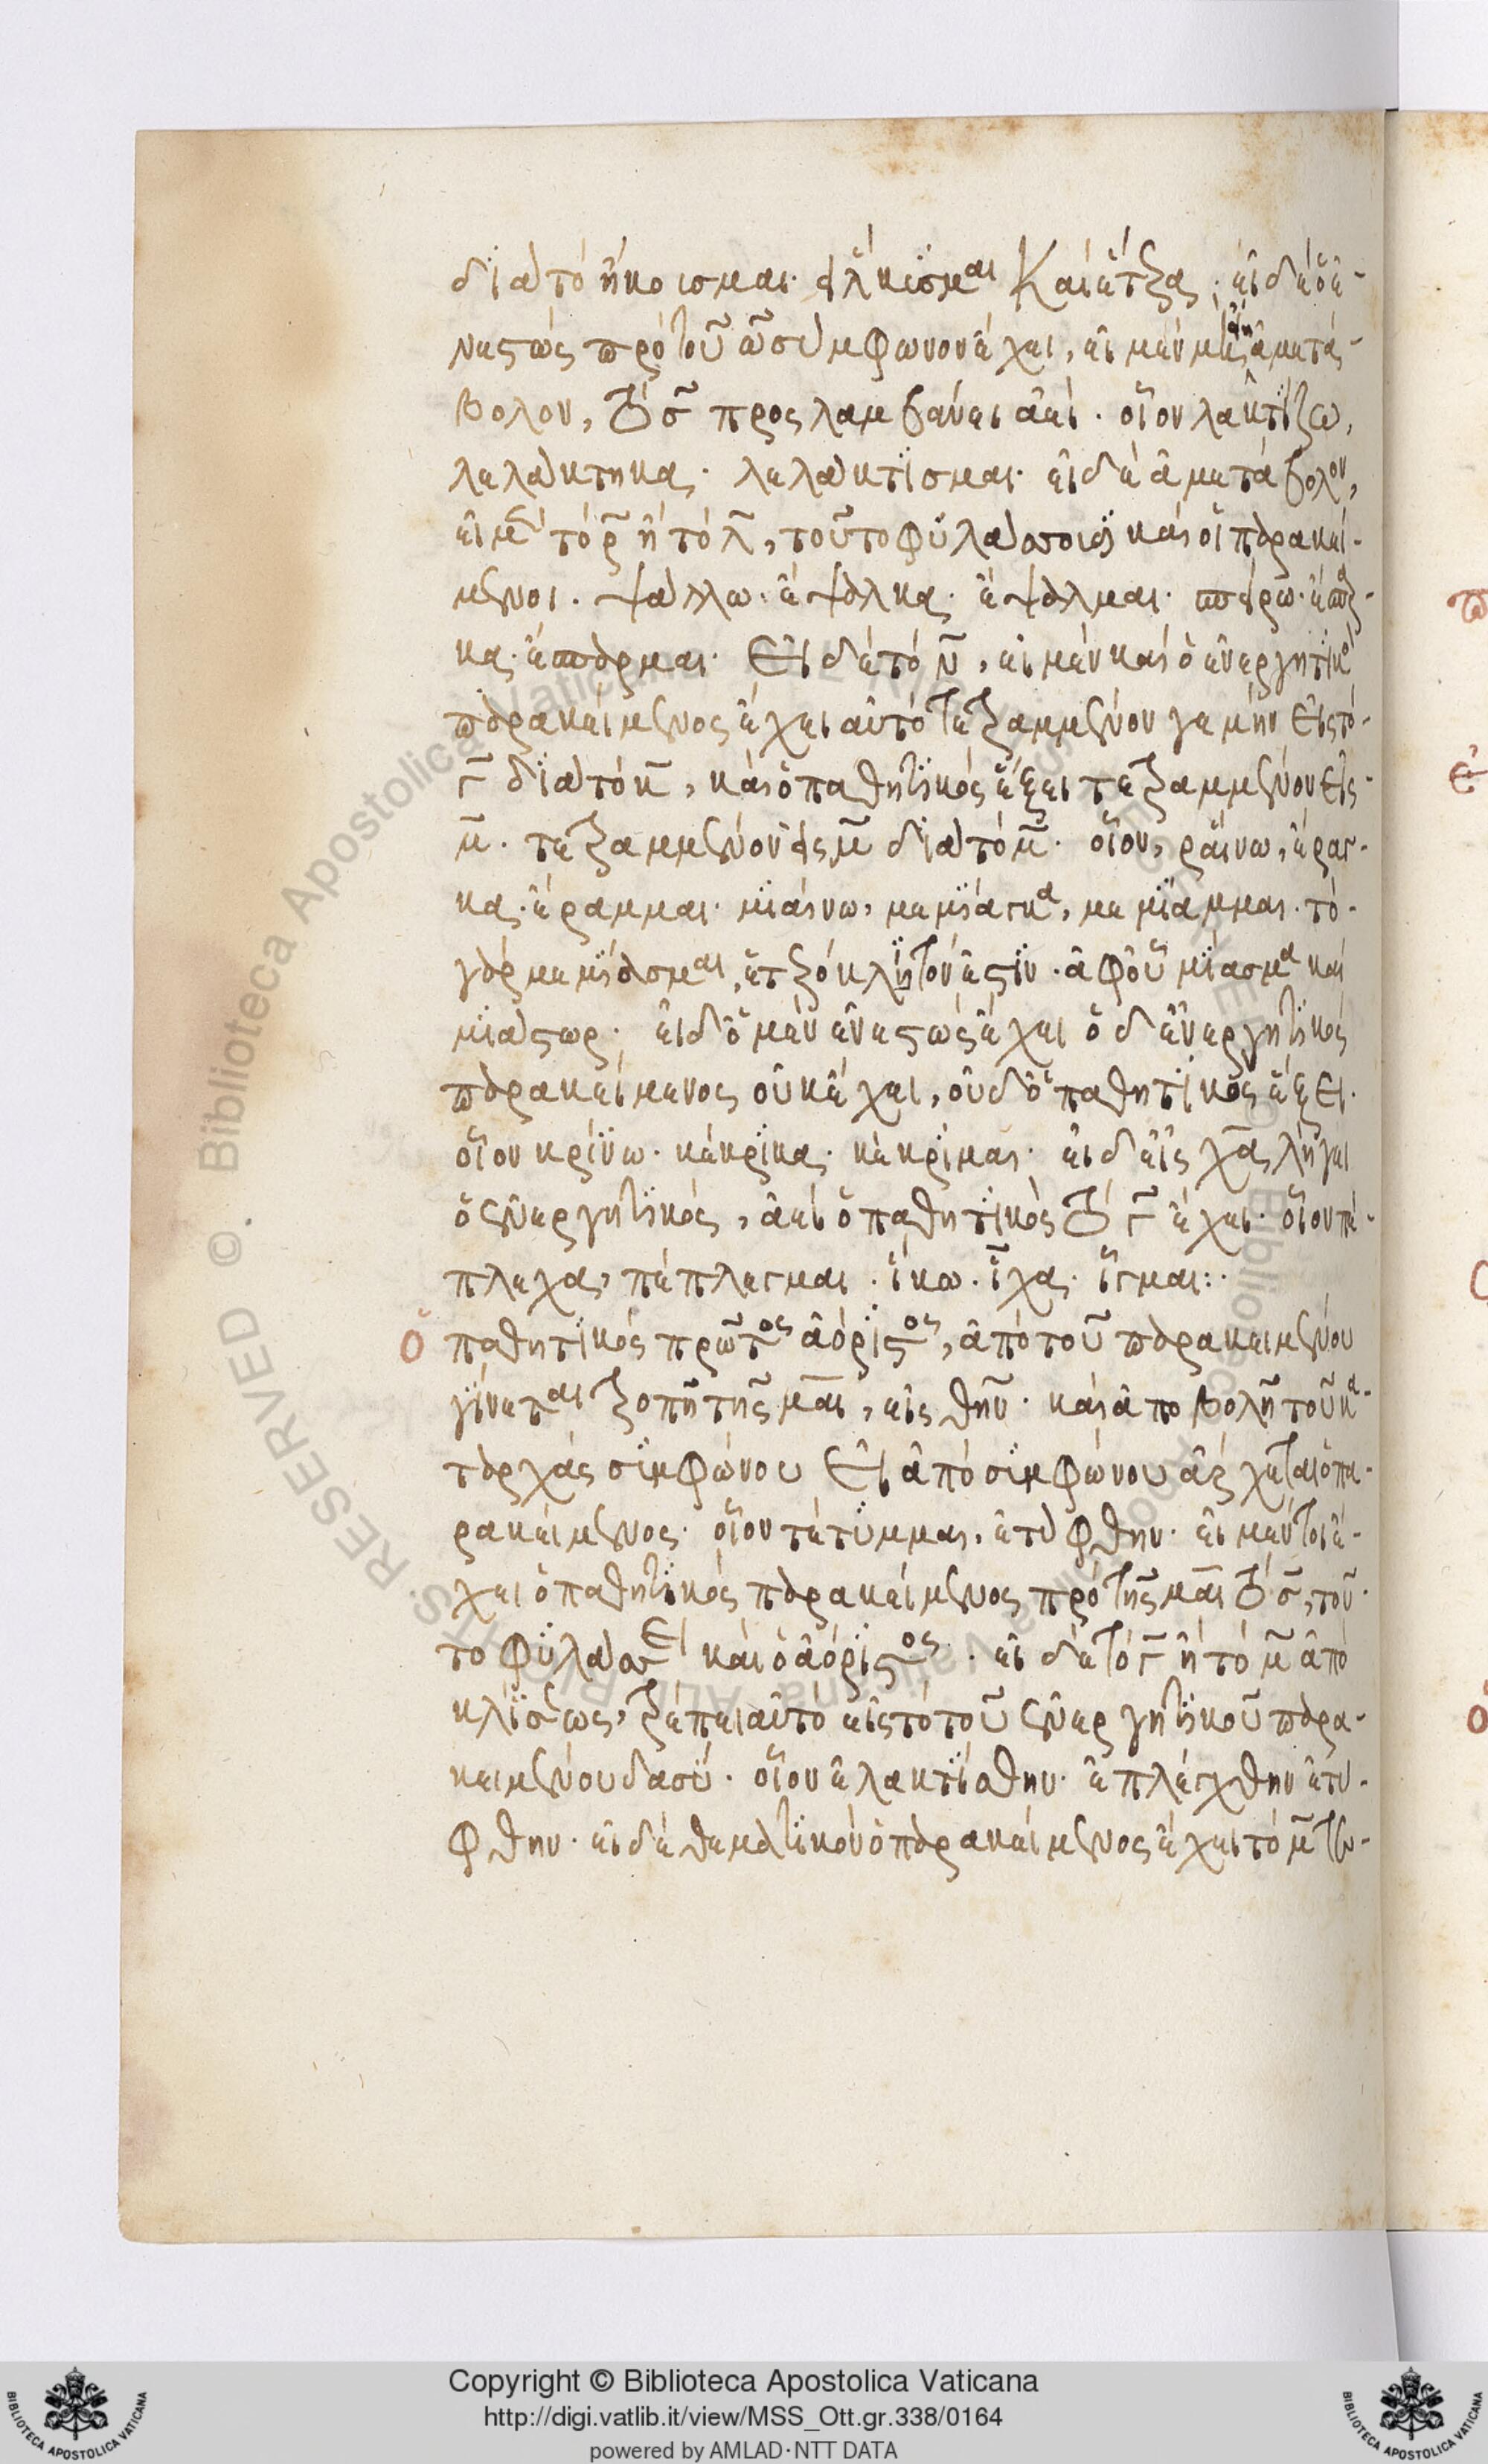 διὰ τὸ ἤκοισμαι. εἵλκισμαι καὶ ἕτερα. εἰ δὲ ὁ ἐ-
νεστὼς πρὸ τοῦ ω̅ σύμφωνον ἔχει, εἰ μὲν μὴ ἀμετά-
βολον, τὸ σ̅ προσλαμβάνει ἀεί. οἷον λακτίζω,
λελάκτηκα. λελάκτισμαι. εἰ δὲ ἀμετάβολον,
εἰ μὲν τὸ ρ̅ ἢ τὸ λ̅, τοῦτο φυλάττει καὶ οἱ παρακεί-
μενοι. ψάλλω. ἔψαλκα. ἔψαλμαι. σπείρω. ἔσπαρ-
κα. ἔσπαρμαι. Εἰ δὲ τὸ ν̅, εἰ μὲν καὶ ὁ ἐνεργητικὸς
παρακείμενος ἔχει αὐτὸ τετραμμένον γε μὴν εἰς τὸ
γ̅ διὰ τὸ κ̅, καὶ ὁ παθητικὸς ἕξει τετραμμένον εἰς
μ̅. τετραμμένον εἰς μ̅ διὰ τὸ μ̅. οἷον, ῥαίνω, ἔραγ-
κα. ἔραμμαι. μιαίνω, μεμίαγκα, μεμίαμμαι. τὸ
γὰρ μεμίασμαι, ἑτερόκλητόν ἐστιν. ἀφ' οὗ μίασμα καὶ
μιάστωρ. εἰ δ' ὁ μὲν ἐνεστὼς ἔχει ὁ δ' ἐνεργητικὸς
παρακείμενος οὐκ ἔχει, οὐδ' ὁ παθητικὸς ἕξει.
οἷον κρίνω. κέκρικα. κέκριμαι. εἰ δ' εἰς χα̅ λήγει
ὁ ἐνεργητικὸς, ἀεὶ ὁ παθητικὸς τὸ γ̅ ἔχει. οἷον πέ-
πλεχα, πέπλεγμαι. ἵκω. ἷχα. ἷγμαι:.
Ὁ παθητικὸς πρῶτος ἀόριστος, ἀπὸ τοῦ παρακειμένου
γίνεται τροπῇ τῆς μαι̅, εἰς θην̅. καὶ ἀποβολῇ τοῦ κα-
ταρχὰς σιμφώνου Εἰ ἀπὸ σιμφώνου ἄρχεται ὁ πα-
ρακείμενος. οἷον τέτυμμαι, ἐτύφθην. εἰ μέντοι ἔ-
χει ὁ παθητικὸς παρακείμενος πρὸ τῆς μαι̅ τὸ σ̅, τοῦ-
το φυλάττει καὶ ὁ ἀόριστος. εἰ δὲ τὸ γ̅ ἢ τὸ μ̅ ἀπὸ
κλίσεως, τρέπει αὐτὸ εἰς τὸ τοῦ ἐνεργητικοῦ παρα-
κειμένου δασύ. οἷον ἐλακτίσθην. ἐπλέγχθην ἐτύ-
φθην. εἰ δὲ θεματικὸν ὁ παρακείμενος ἔχει τὸ μ̅
Copyright © Biblioteca Apostolica Vaticana
http://digi.vatlib.it/view/MSS_Ott.gr.338/0164
powered by AMLAD·NTT DATA